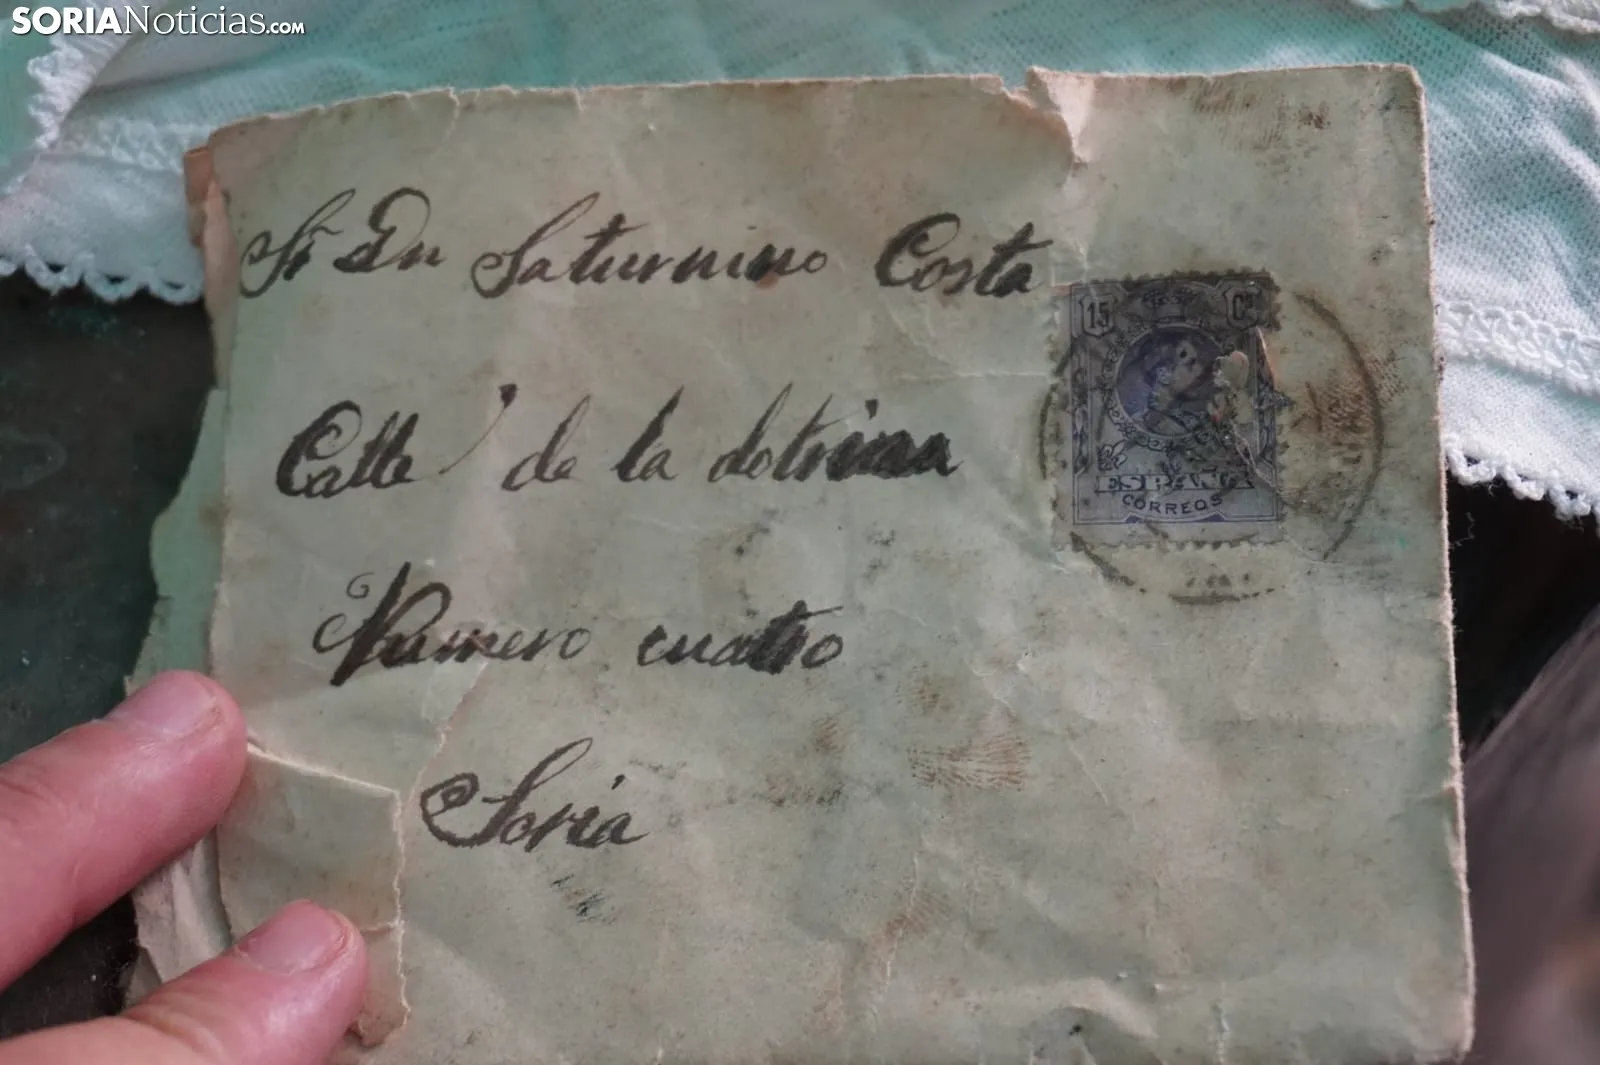 SORIANoticias.com
Sr Dn Saturnino Costa
15 Cs
Calle de la dotrina
ESPAÑA
CORREOS
Numero cuatro
Soria